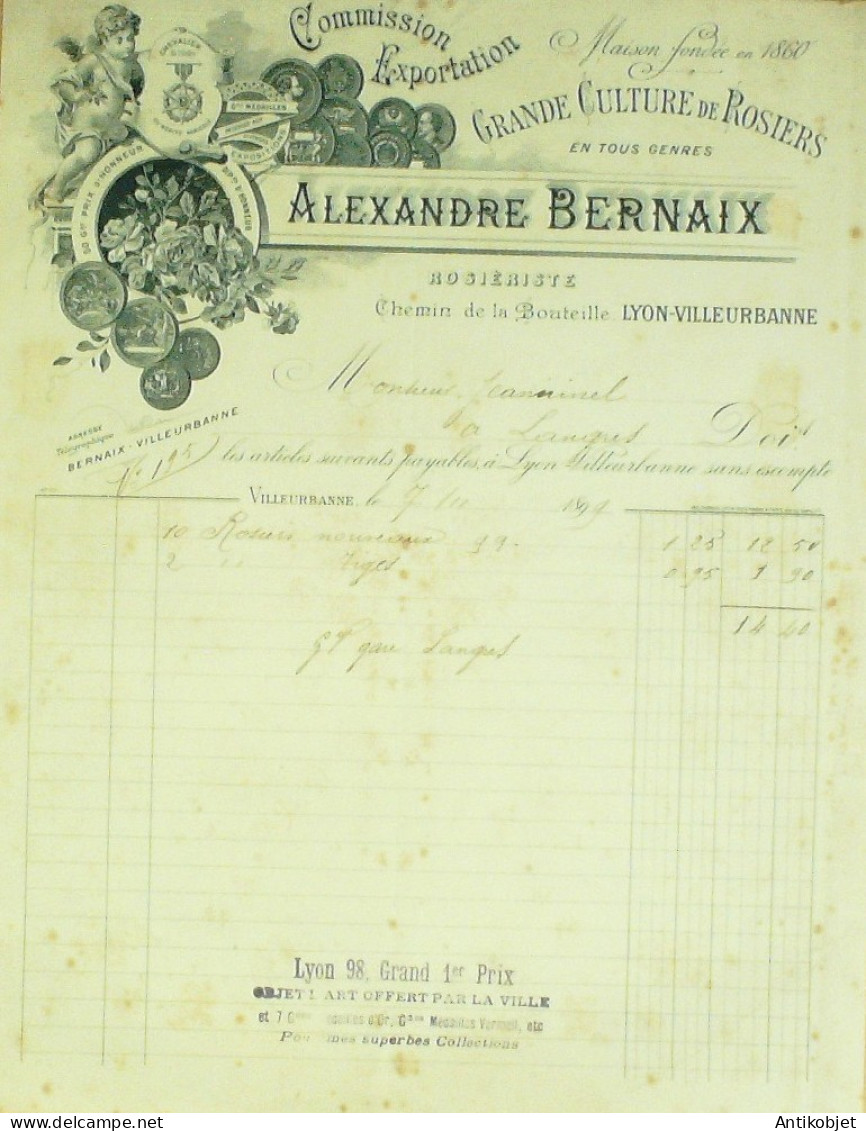 Commission
Exportation
Maison fondée en 1860
GRANDE CULTURE DE ROSIERS
EN TOUS GENRES
CHEVALIER
EXPOSITIONS
50 Gds PRIX D'HONNEUR
ALEXANDRE BERNAIX
ROSIÉRISTE
Chemin de la Bouteille LYON-VILLEURBANNE
Monsieur
à Langres Doit
ADRESSE
Télégraphique
BERNAIX-VILLEURBANNE
les articles suivants payables à Lyon Villeurbanne sans escompte
VILLEURBANNE, le 7 1899
10 Rosiers nouveaux 99 - 1 25 12 50
2 " " Tiges 0 95 1 90
14 40
GV gare Langres
Lyon 98, Grand 1er Prix
OBJET D'ART OFFERT PAR LA VILLE
et 7 Gdes Médailles d'Or, Gdes Médailles Vermeil, etc
Pour mes superbes Collections
Antikobjet